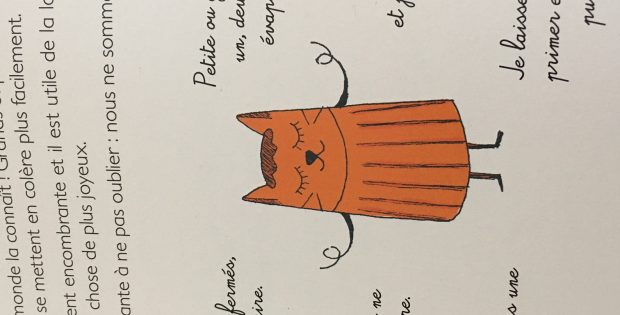 monde la connaît !
se mettent en colère plus facilement.
encombrante et il est utile de la
chose de plus joyeux.
à ne pas oublier : nous ne
fermés,
ire.
ne
re.
s une
Petite ou
un, deu
évap
et
Je laisse
primer e
pu